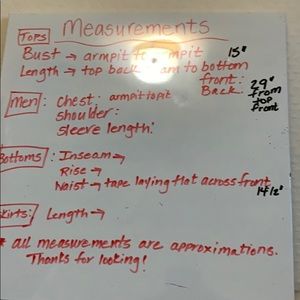 Measurements
Tops
Bust → armpit to armpit 15"
Length → top back to bottom
front: 29" from top front
Back:
Men: Chest: armpit to pit
shoulder:
sleeve length:
Bottoms: Inseam →
Rise →
Waist → tape laying flat across front 14 1/2"
Skirts: Length →
* all measurements are approximations.
Thanks for looking!